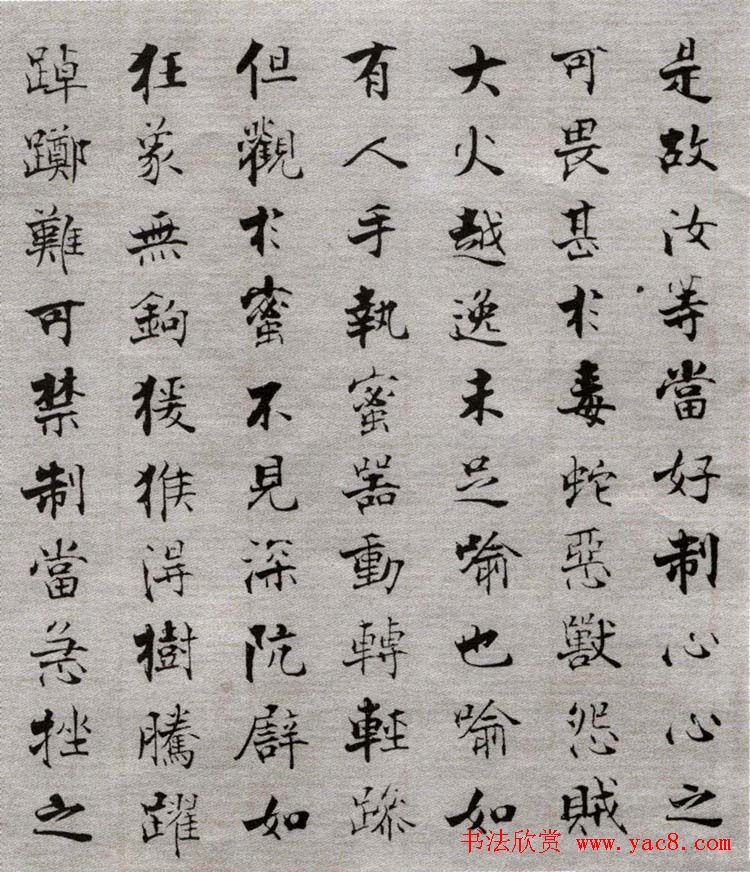 是故汝等當好制心心之
可畏甚於毒蛇惡獸怨賊
大火越逸未足喻也喻如
有人手執蜜器動轉輕躁
但觀於蜜不見深阬譬如
狂象無鉤猨猴得樹騰躍
踔躑難可禁制當急挫之
书法欣赏 www.yac8.com